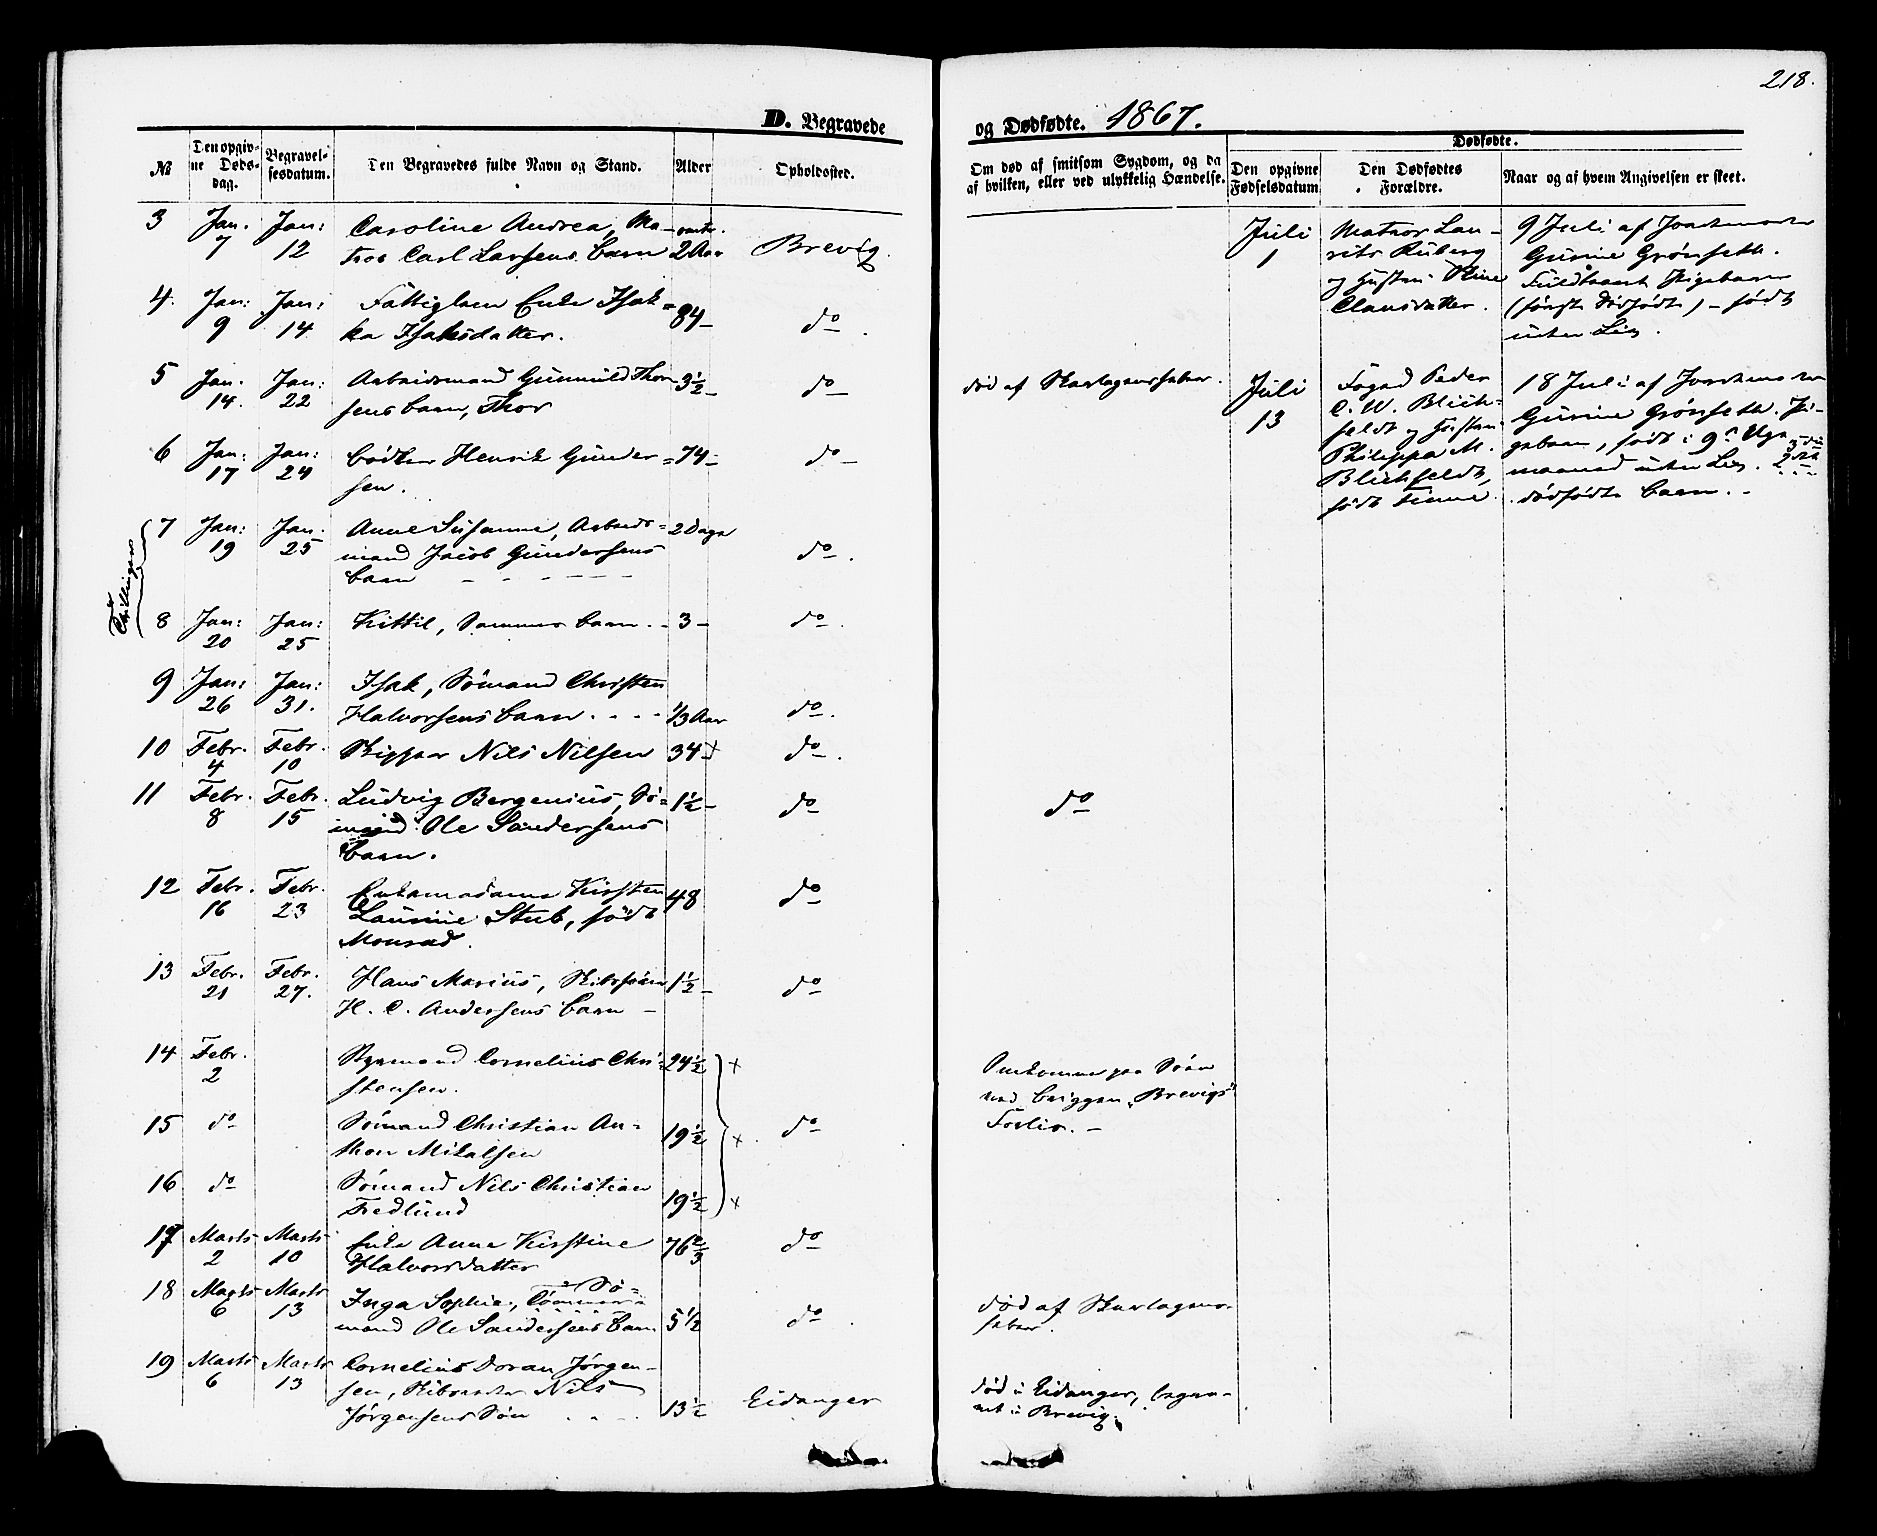 218.
D. Begravede
og Dødfødte. 1867.
№
Den opgiv-
ne Døds-
dag.
Begravel-
sesdatum.
Den Begravedes fulde Navn og Stand.
Alder
Opholdssted.
Om død af smitsom Sygdom, og da
af hvilken, eller ved ulykkelig Hændelse.
Dødfødte.
Den opgivne
Fødselsdatum
Den Dødfødtes
Forældre.
Naar og af hvem Angivelsen er skeet.
3 Jan. 7 Jan: 12 Caroline Andrea, Ma-
tros Carl Larsens Barn 2 Aar Brevig.
4. Jan: 9 Jan: 14. Fattiglem Enke Isak-
ka Isaksdatter. 84 do
5 Jan. 14. Jan: 22 Arbeidsmand Gunnuld Thor-
sens barn, Thor 3½ do død af Skarlagensfeber.
6 Jan: 17 Jan: 24 Bødker Henrik Gunder-
sen. 74 do
Tvillinger
7 Jan: 19 Jan. 25 Anne Susanne, Arbeids-
mand Jacob Gundersens
barn 2 Dage do
8 Jan: 20 Jan: 25 Kittil, Sammes barn 3 do
9 Jan: 26 Jan: 31. Isak, Sømand Christen
Halvorsens barn 1/3 Aar do
10 Febr. 4 Febr. 10 Skipper Nils Nilsen 34 + do
11 Febr. 8 Febr. 15 Ludvig Bergenius, Sø-
mand Ole Sandersens
Barn. 1½ do do
12 Febr. 16 Febr. 23 Enkemadame Kirsten
Laurine Stub, født
Monrad. 48 do
13 Febr. 21 Febr. 27. Hans Marius,
H. C. Andersens barn 1½ do
14 Febr. 2 Styrmand Cornelius Chri-
stensen. 24½ + Omkommen paa Søen
med briggen "Brevigs
15 do Sømand Christian An-
thon Mikalsen 19½ + do
16 do Sømand Nils Christian
Fredlund 19½ +
17 Marts 2 Marts 10 Enke Anne Kirstine
Halvorsdatter 76 2/3 do
18 Marts 6 Marts 13 Inga Sophie, Sø-
mand Ole Sandersens Barn 5½ do død af Skarlagens-
feber.
19 Marts 6 Marts 13 Cornelius Doran Jørgen-
sen, Nils
Jørgensens Søn 13½ Eidanger død i Eidanger, begra-
vet i Brevig.
Juli 1
Matros Lau-
rits Ruberg
og Hustru Stine
Clausdatter.
9 Juli af Jordemoder
Gurine Grønseth.
Fuldbaaret Pigebarn
(første dødfødte) - født
uden Liv.
Juli 13
Foged Peder
C. W. Blich-
feldt og Hustru
Philippa M.
Blichfeldt,
født Finne.
18 Juli af Jordemoder
Gurine Grønseth. Pi-
gebarn, født i 9de Svangerskabs-
maaned uden Liv. 2det
dødfødte barn.